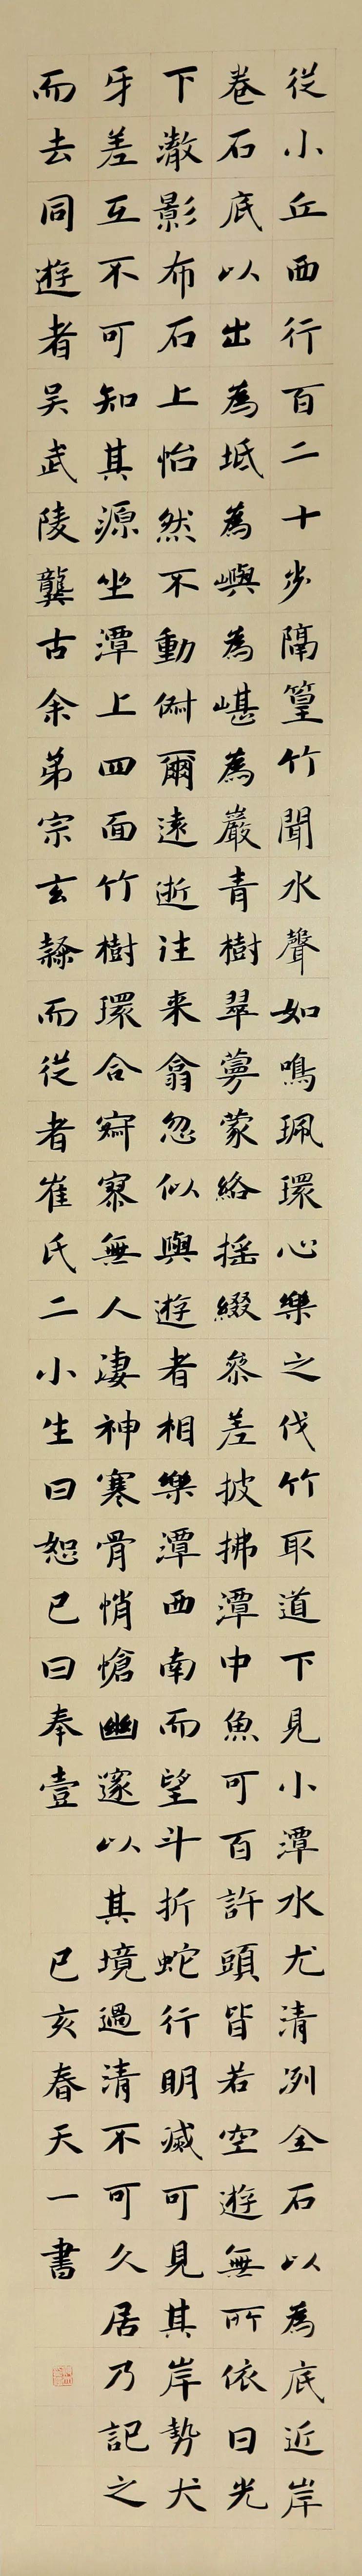 從小丘西行百二十步隔篁竹聞水聲如鳴珮環心樂之伐竹取道下見小潭水尤清冽全石以為底近岸
卷石底以出為坻為嶼為嵁為巖青樹翠蔓蒙絡搖綴參差披拂潭中魚可百許頭皆若空遊無所依日光
下澈影布石上怡然不動俶爾遠逝往來翕忽似與遊者相樂潭西南而望斗折蛇行明滅可見其岸勢犬
牙差互不可知其源坐潭上四面竹樹環合寂寥無人淒神寒骨悄愴幽邃以其境過清不可久居乃記之
而去同遊者吳武陵龔古余弟宗玄隸而從者崔氏二小生曰恕已曰奉壹
已亥春天一書